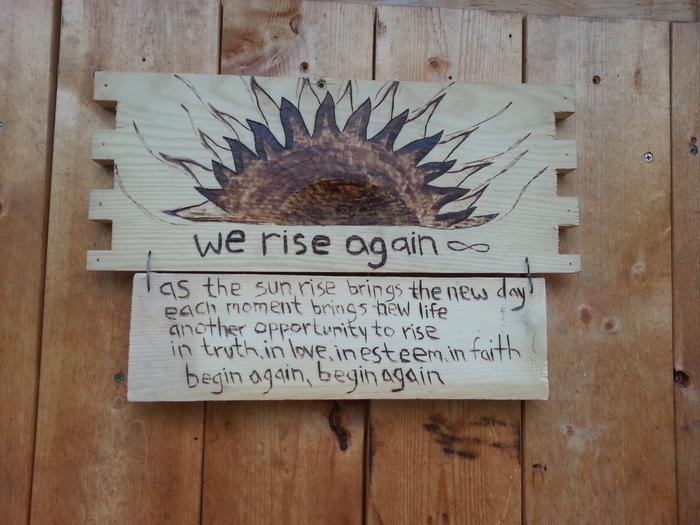 we rise again ∞
as the sun rise brings the new day
each moment brings new life
another opportunity to rise
in truth, in love, in esteem, in faith
begin again, begin again